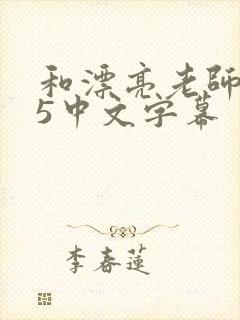 和漂亮老師
5中文字幕
李春蓮